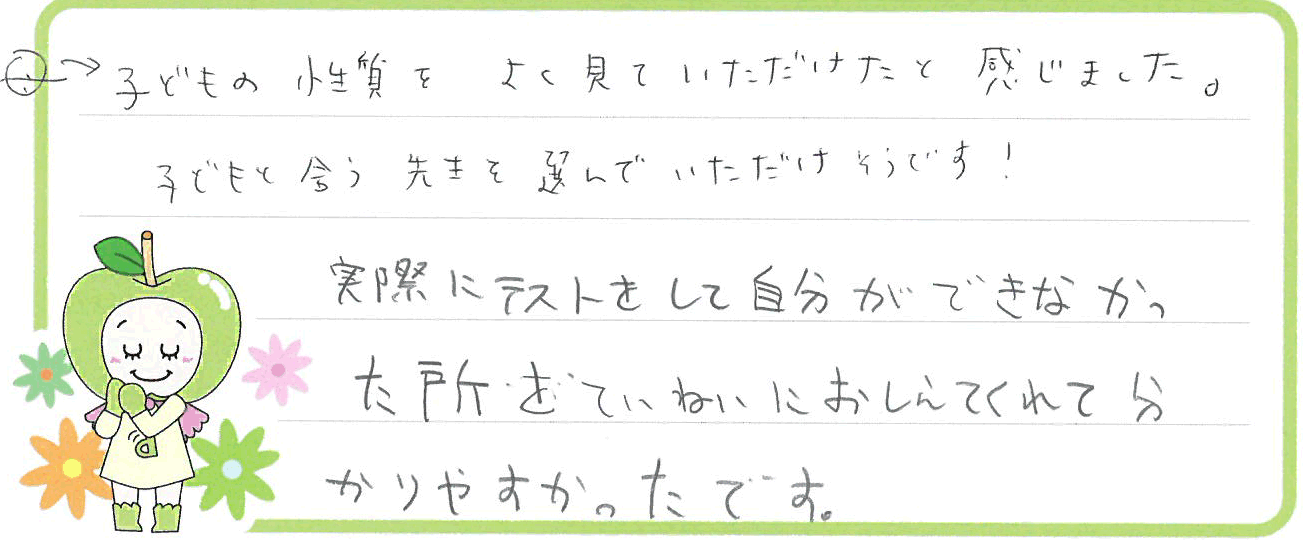 →子どもの性質をよく見ていただけたと感じました。
子どもと合う先生を選んでいただけそうです!
実際にテストをして自分ができなかっ
た所をていねいにおしえてくれて分
かりやすかったです。